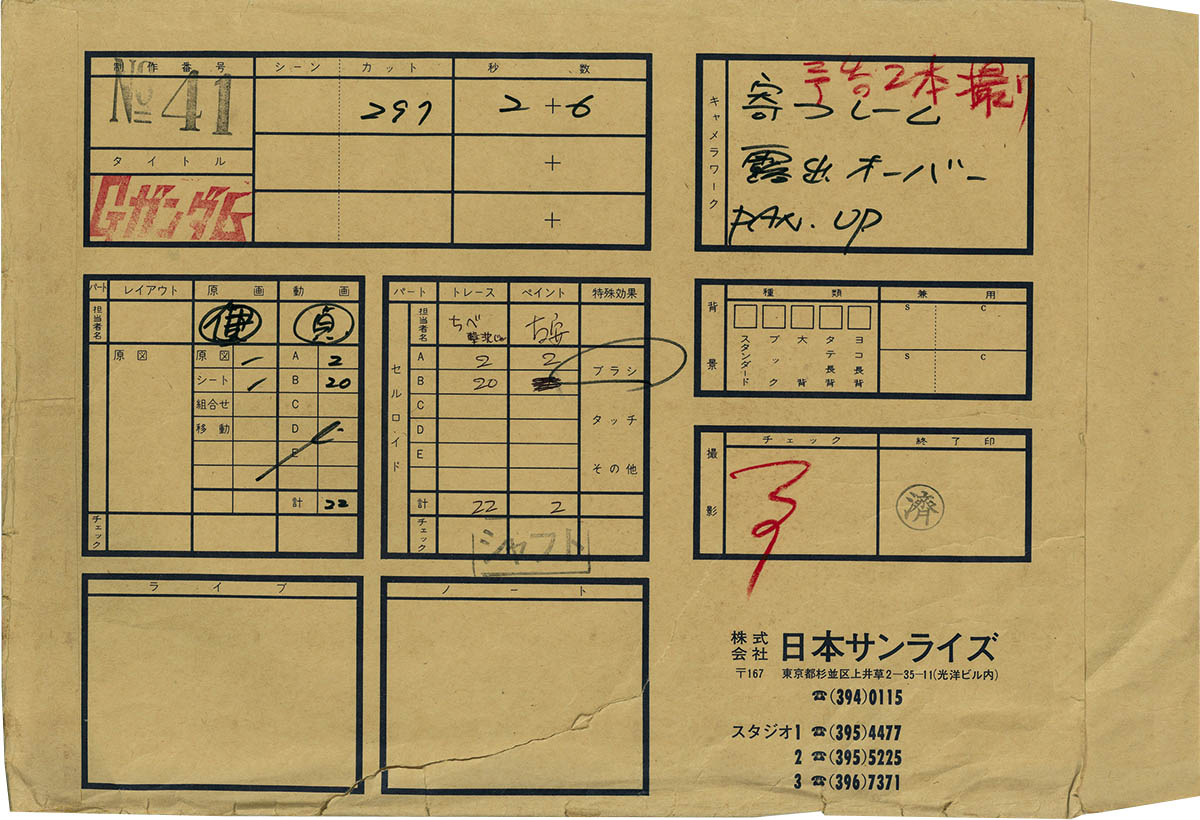 制作番号
No 41
タイトル
Gガンダム
シーン カット 秒数
297 2+6
+
+
キャメラワーク
2本撮り
露出オーバー
PAN. UP
パート レイアウト 原画 動画
担当者名
原図 原図 A 2
シート B 20
組合せ C
移動 D
E
計 22
チェック
パート トレース ペイント 特殊効果
担当者名
セルロイド
A 2 2 ブラシ
B 20
C タッチ
D
E その他
計 22 2
チェック
シャフト
背景
種類 兼用
スタンダード ブック 大背 タテ長背 ヨコ長背
S C
S C
撮影
チェック 終了印
済
ライブ
ノート
株式会社 日本サンライズ
〒167 東京都杉並区上井草2-35-11(光洋ビル内)
☎(394)0115
スタジオ1 ☎(395)4477
2 ☎(395)5225
3 ☎(396)7371